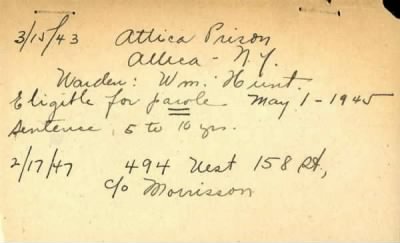 3/15/43 Attica Prison
Attica - N.Y.
Warden: Wm. Hunt.
Eligible for parole May 1 - 1945
Sentence, 5 to 10 yrs.
2/17/47 494 West 158 St,
c/o Morrisson